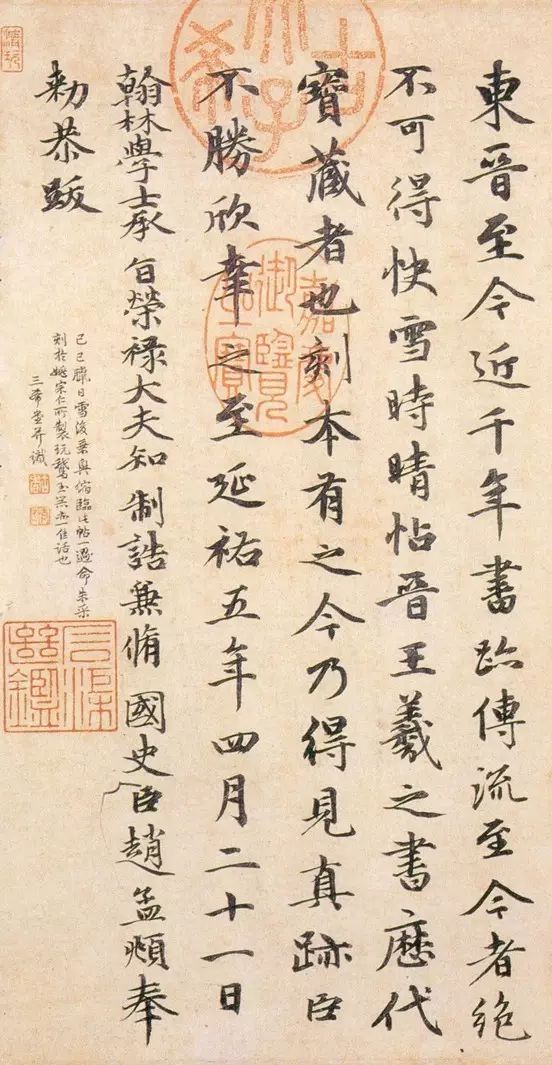 古希天子
東晉至今近千年書跡傳流至今者絕
不可得快雪時晴帖晉王羲之書歷代
寶藏者也刻本有之今乃得見真跡臣
不勝欣幸之至延祐五年四月二十一日
翰林學士承旨榮祿大夫知制誥兼脩國史臣趙孟頫奉
勑恭跋
嘉慶御覽之寶
己巳臘日雪後乘興偶臨此帖一過命朱采
刻於姚宗仁所製玩鵞玉亦一佳話也
三希堂并識